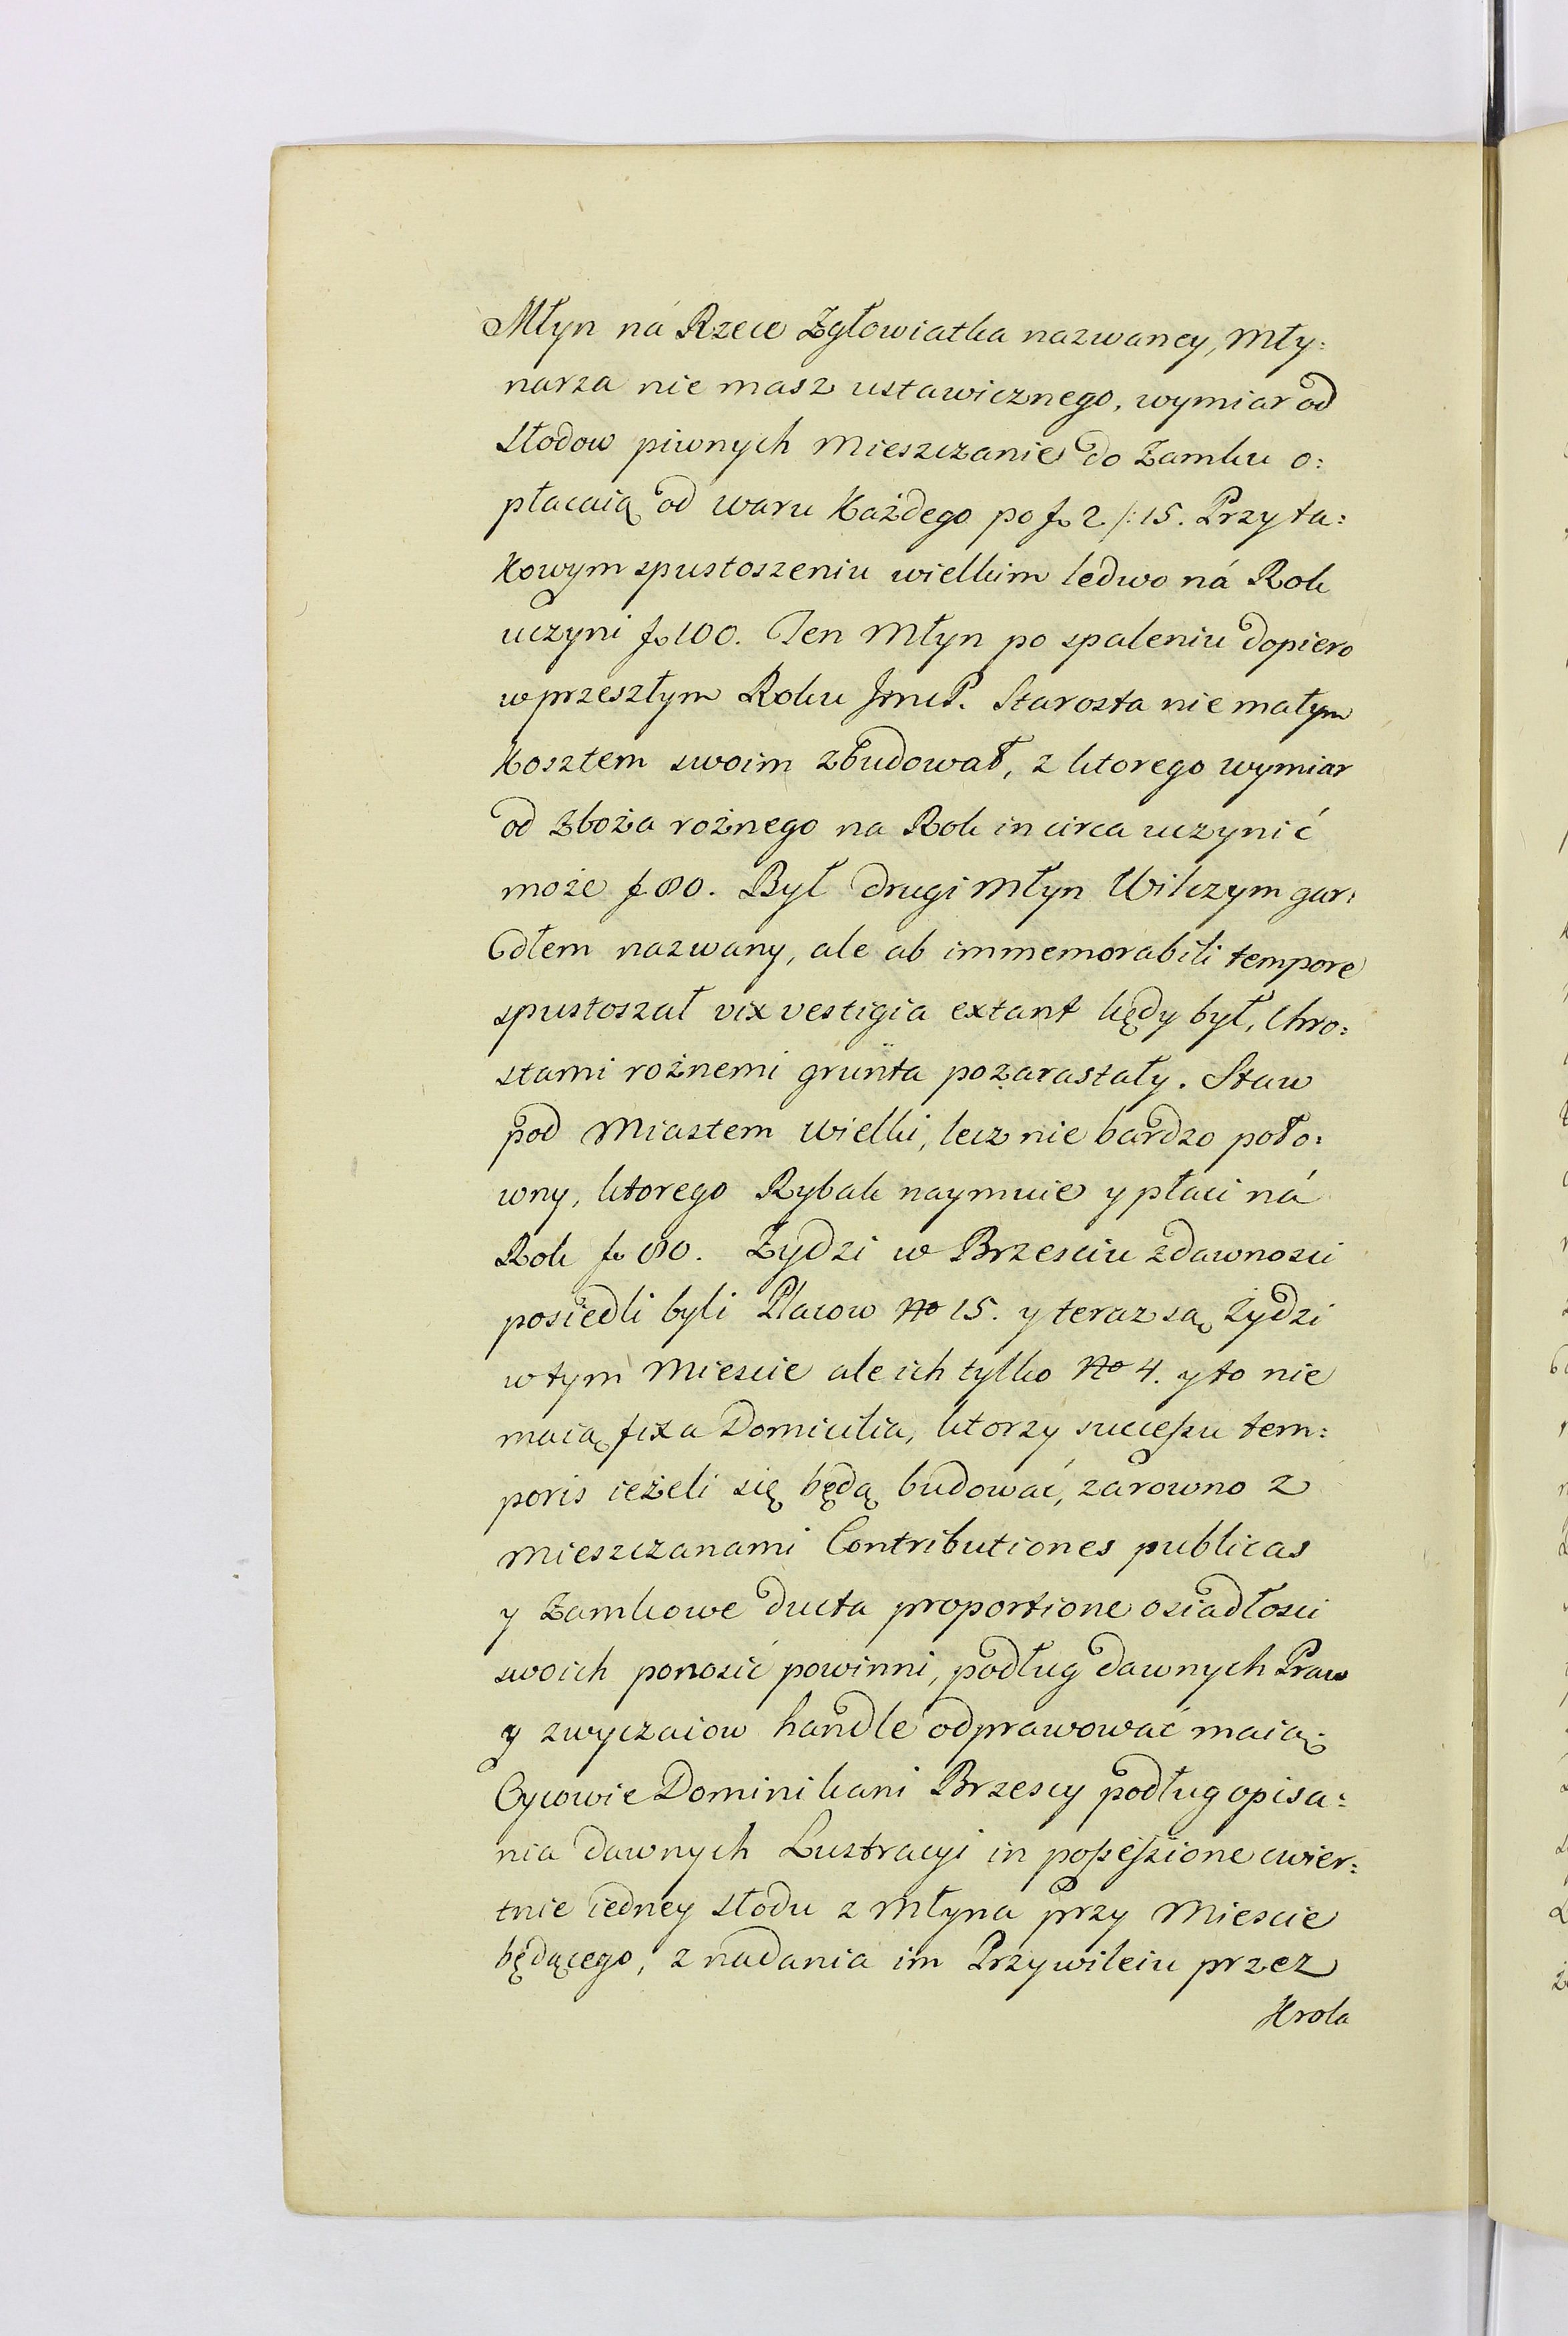 Młyn ná Rzece Zgłowiatka nazwaney, Mły:
narza nie masz ustawicznego, wymiar od
słodow piwnych Mieszczanie do Zamku o:
płacaią od waru każdego po f. 2 /: 15. Przy ta:
kowym spustoszeniu wielkim ledwo ná Rok
uczyni f. 100. Ten Młyn po spaleniu dopiero
w przeszłym Roku JmcP. Starosta nie małym
kosztem swoim zbudował, z ktorego wymiar
od Zboża rożnego na Rok in circa uczynić
może f 80. Był drugi Młyn Wilczym gar:
dłem nazwany, ale ab immemorabili tempore
spustoszał vix vestigia extant kędy był, Chro:
stami rożnemi grunta pozarastały. Staw
pod Miastem Wielki, lecz nie bardzo poło:
wny, ktorego Rybak naymuie y płaci ná
Rok f. 80. Zydzi w Brzesciu zdawnosci
posiedli byli Placow No 15. y teraz są Zydzi
w tym Miescie ale ich tylko No 4. y to nie
maią fixa Domicilia, ktorzy successu tem:
poris ieżeli się będą budować, zarowno z
Mieszczanami Contributiones publicas
y Zamkowe ducta proportione osiadłosci
swoich ponosić powinni, podług dawnych Praw
y zwyczaiow handle odprawować maią.
Oycowie Dominikani Brzescy podług opisa:
nia dawnych Lustracyi in possessione cwier:
tnie iedney słodu z Młyna przy Miescie
będącego, z nadania im Przywileiu przez
Krola